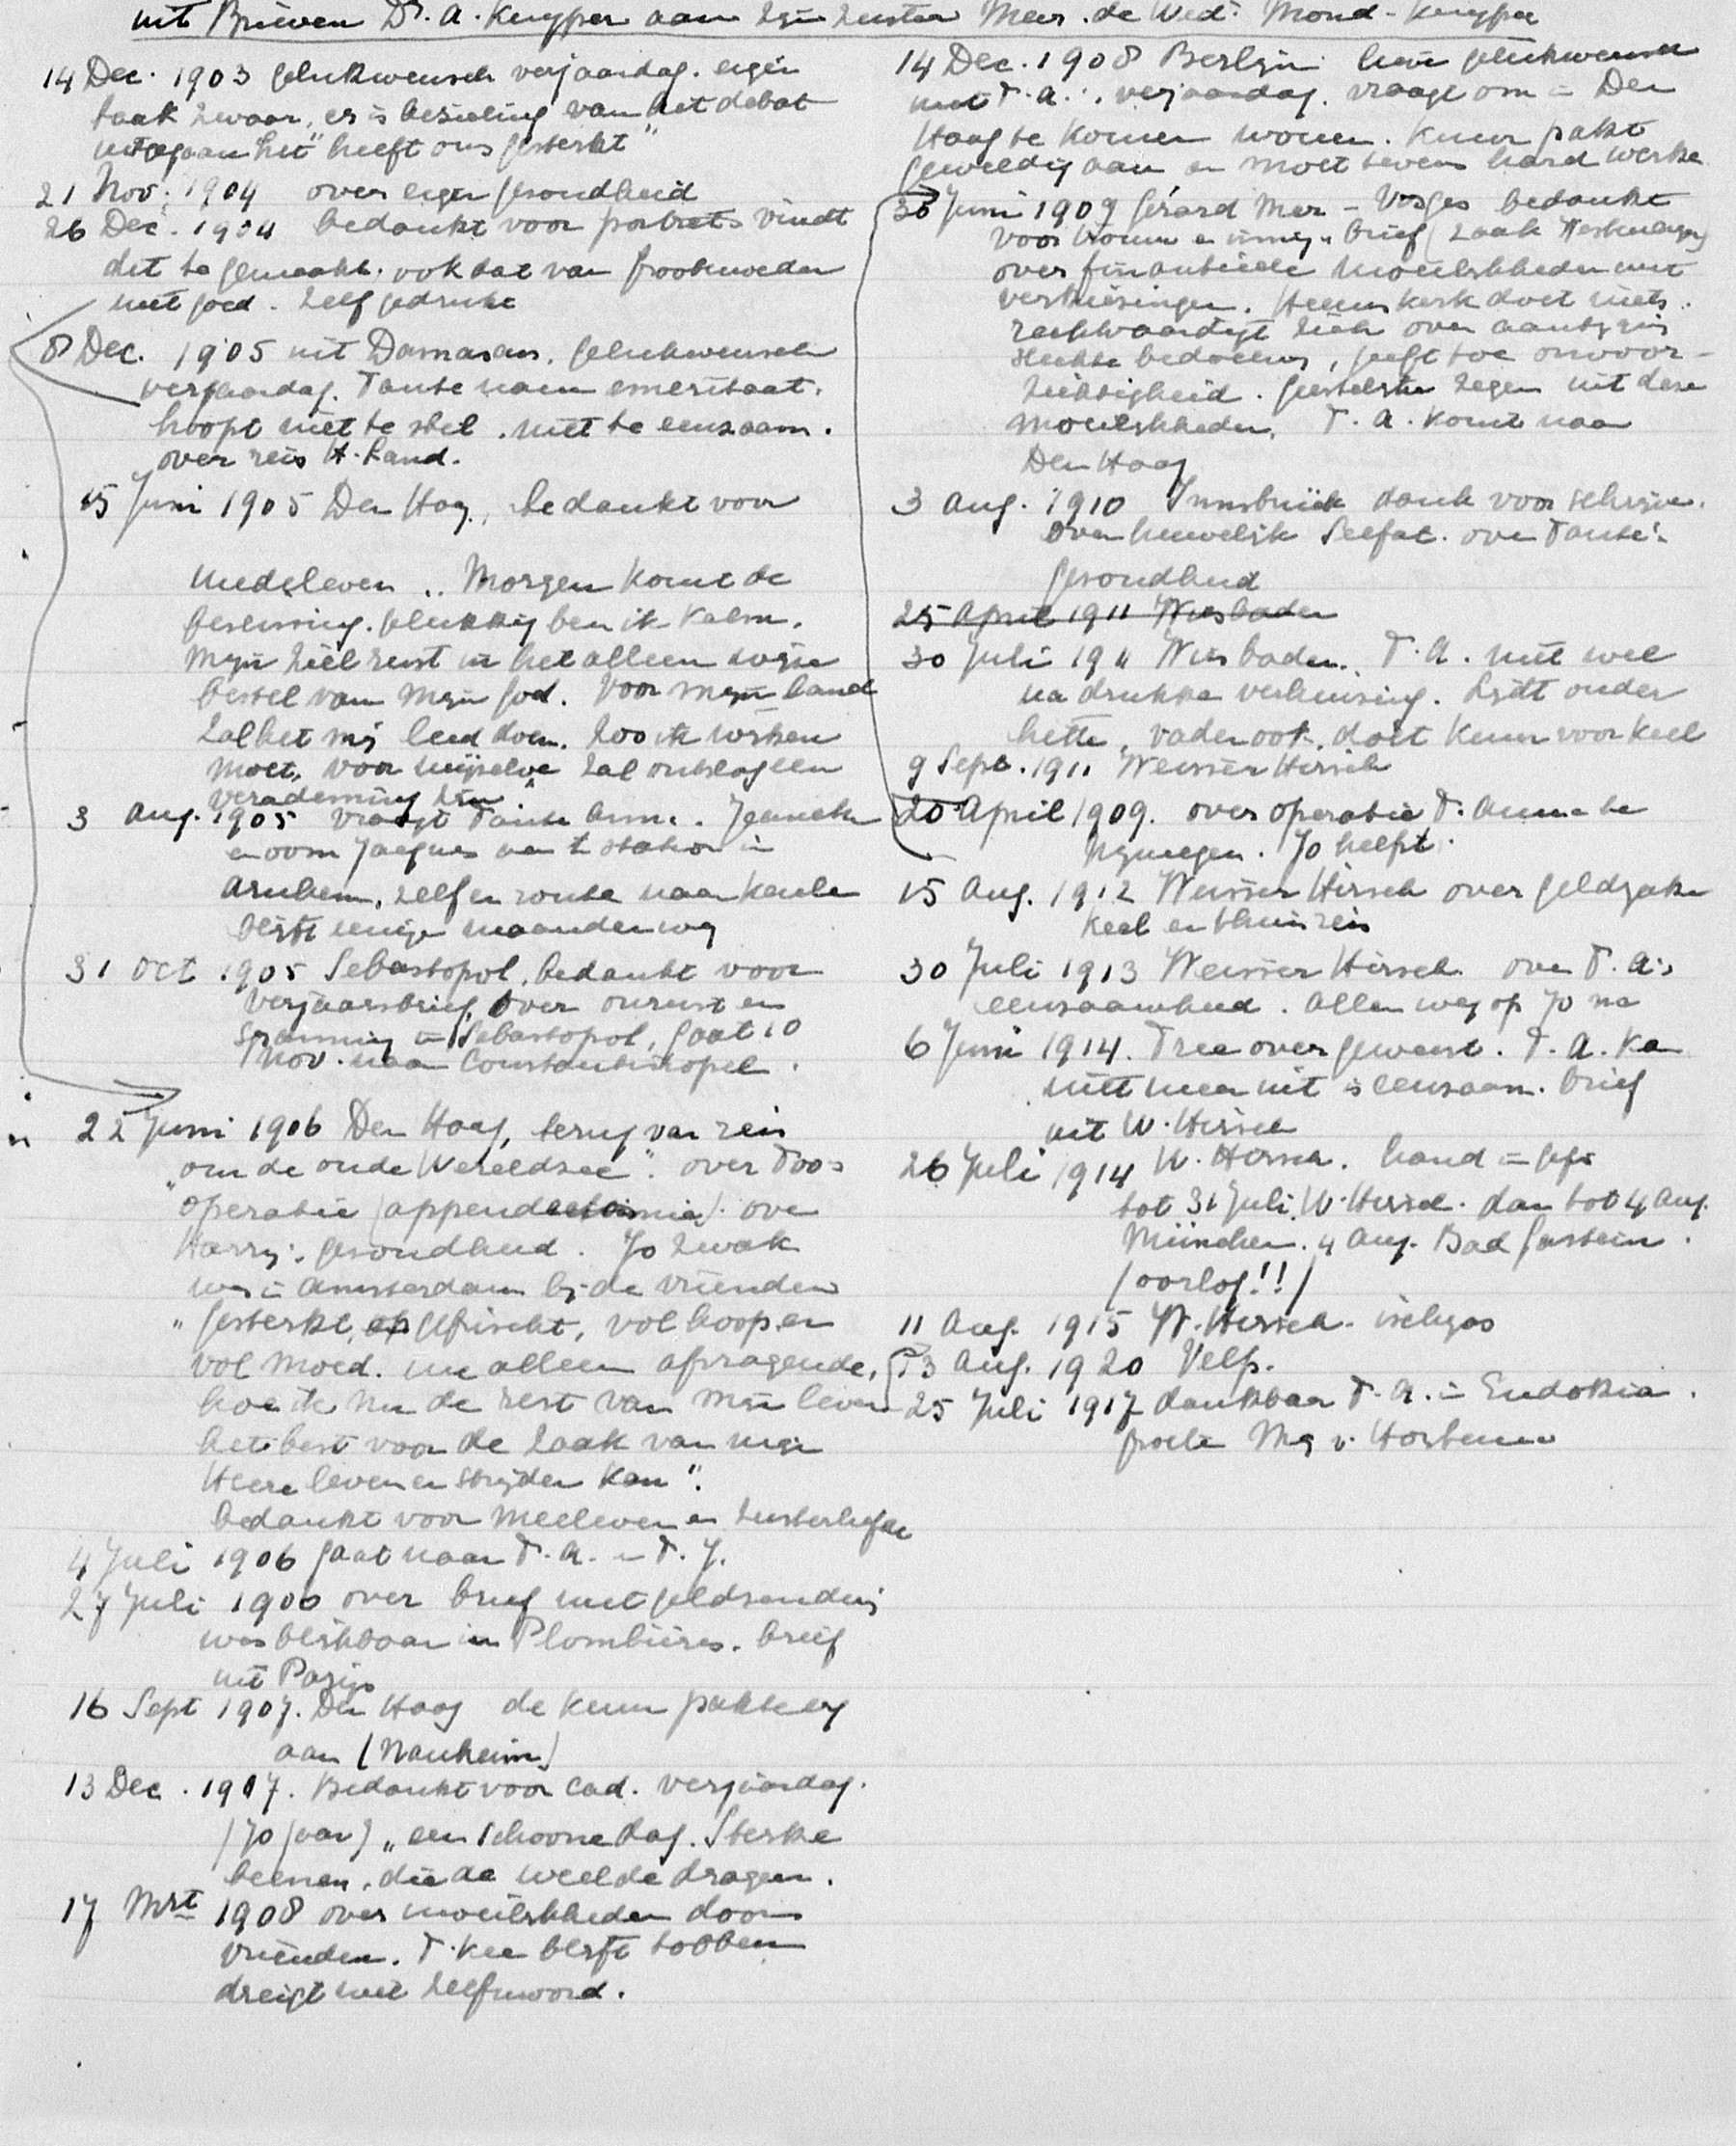 uit Brieven Dr. A. Kuyper aan zijn zuster Mevr. de Wed. Mond-Kuyper
14 Dec. 1903 gelukwensch verjaardag. eigen
taak zwaar, er is bezieling van het debat
uitgegaan het "heeft ons gesterkt"
21 Nov. 1904 over eigen gezondheid
26 Dec. 1904 bedankt voor portret. vindt
dit te gemaakt. ook dat van
niet goed. zelf gedrukt
8 Dec. 1905 uit Damascus. gelukwensch
verjaardag. Tante nam emeritaat.
hoopt niet te stil. niet te eenzaam.
over reis H. Land.
15 Juni 1905 Den Haag, bedankt voor
medeleven .. Morgen komt de
beslissing. gelukkig ben ik kalm.
Mijn ziel rust in het alleen wijze
bestel van mijn God. Voor mijn land
zal het mij leed doen. Zoo ik wijken
moet, voor mijzelve zal ontslag een
verademing zijn.
3 Aug. 1905 vraagt Tante Anna. Jeannette
en oom Jacques aan 't station in
Arnhem, zelf en route naar Keulen
blijft eenige maanden weg
31 Oct 1905 Sebastopol, bedankt voor
verjaarsbrief, over onrust en
spanning in Sebastopol, gaat 10
Nov. naar Constantinopel.
22 Juni 1906 Den Haag, terug van reis
"om de oude Wereldzee". over Too's
operatie (appendectomie). over
Harry's gezondheid. Jo zwak
was in Amsterdam bij de vrienden
"gesterkt, opgefrischt, vol hoop en
vol moed. nu alleen afvragende,
hoe ik nu de rest van mijn leven
het best voor de zaak van mijn
Heere leven en strijden kan".
bedankt voor meeleven en zusterliefde
4 Juli 1906 gaat naar T. A. en T. J.
27 Juli 1906 over brief met geldzending
was blijkbaar in Plombières. brief
uit Parijs
16 Sept 1907. Den Haag de kuur pakte erg
aan (Nauheim)
13 Dec. 1907. Bedankt voor cad. verjaardag.
(70 jaar) "een schoone dag. Sterke
beenen, die de weelde dragen.
17 Mrt 1908 over moeilijkheden door
vrienden. T. Kee blijft tobben
dreigt met zelfmoord.
14 Dec. 1908 Berlijn. lieve gelukwensch
met T. A.'s verjaardag. vraagt om in Den
Haag te komen wonen. Kuur pakt
geweldig aan en moet tevens hard werken
30 Juni 1909 Gérard Mer - Vosges bedankt
voor trouwe en innige brief (zaak
over finantieele moeilijkheden met
verkiezingen. Heemskerk doet niets.
rechtvaardigt zich over aantijging
slechte bedoeling, geeft toe onvoor-
zichtigheid. geestelijke zegen uit deze
moeilijkheden. T. A. komt naar
Den Haag
3 Aug. 1910 Innsbrück dank voor schrijven.
over huwelijk Seefat. over Tante's
gezondheid
25 April 1911 Wiesbaden
30 Juli 1911 Wiesbaden. T. A. niet wel
na drukke verhuizing. Lijdt onder
hitte, vader ook. doet kuur voor keel
9 Sept. 1911 Weisser Hirsch
20 April 1909. over operatie T. Anna te
Nijmegen. Jo helpt.
15 Aug. 1912 Weisser Hirsch over geldzaken
keel en thuisreis
30 Juli 1913 Weisser Hirsch over T. A.'s
eenzaamheid. Allen weg op Jo na
6 Juni 1914. Tree over geweest. T. A. kan
niet meer uit is eenzaam. brief
uit W. Hirsch
26 Juli 1914 W. Hirsch. hand in gips
tot 31 Juli W. Hirsch. dan tot 4 Aug.
München. 4 Aug. Bad Gastein.
(oorlog!!)
11 Aug. 1915 W. Hirsch. ischias
13 Aug. 1920 Velp.
25 Juli 1917 dankbaar T. A. in Eudokia.